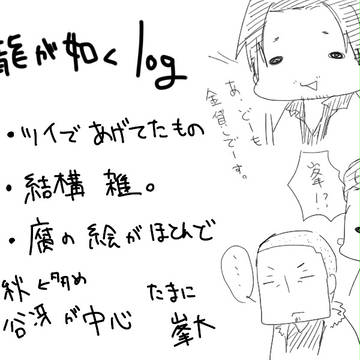 龍が如くlog
・ツイであげてたもの
・結構 雑。
・腐の絵がほとんど
秋 多め
谷冴が中心
たまに
峯大
あ、どーも
金貸しでーす。
峯!?